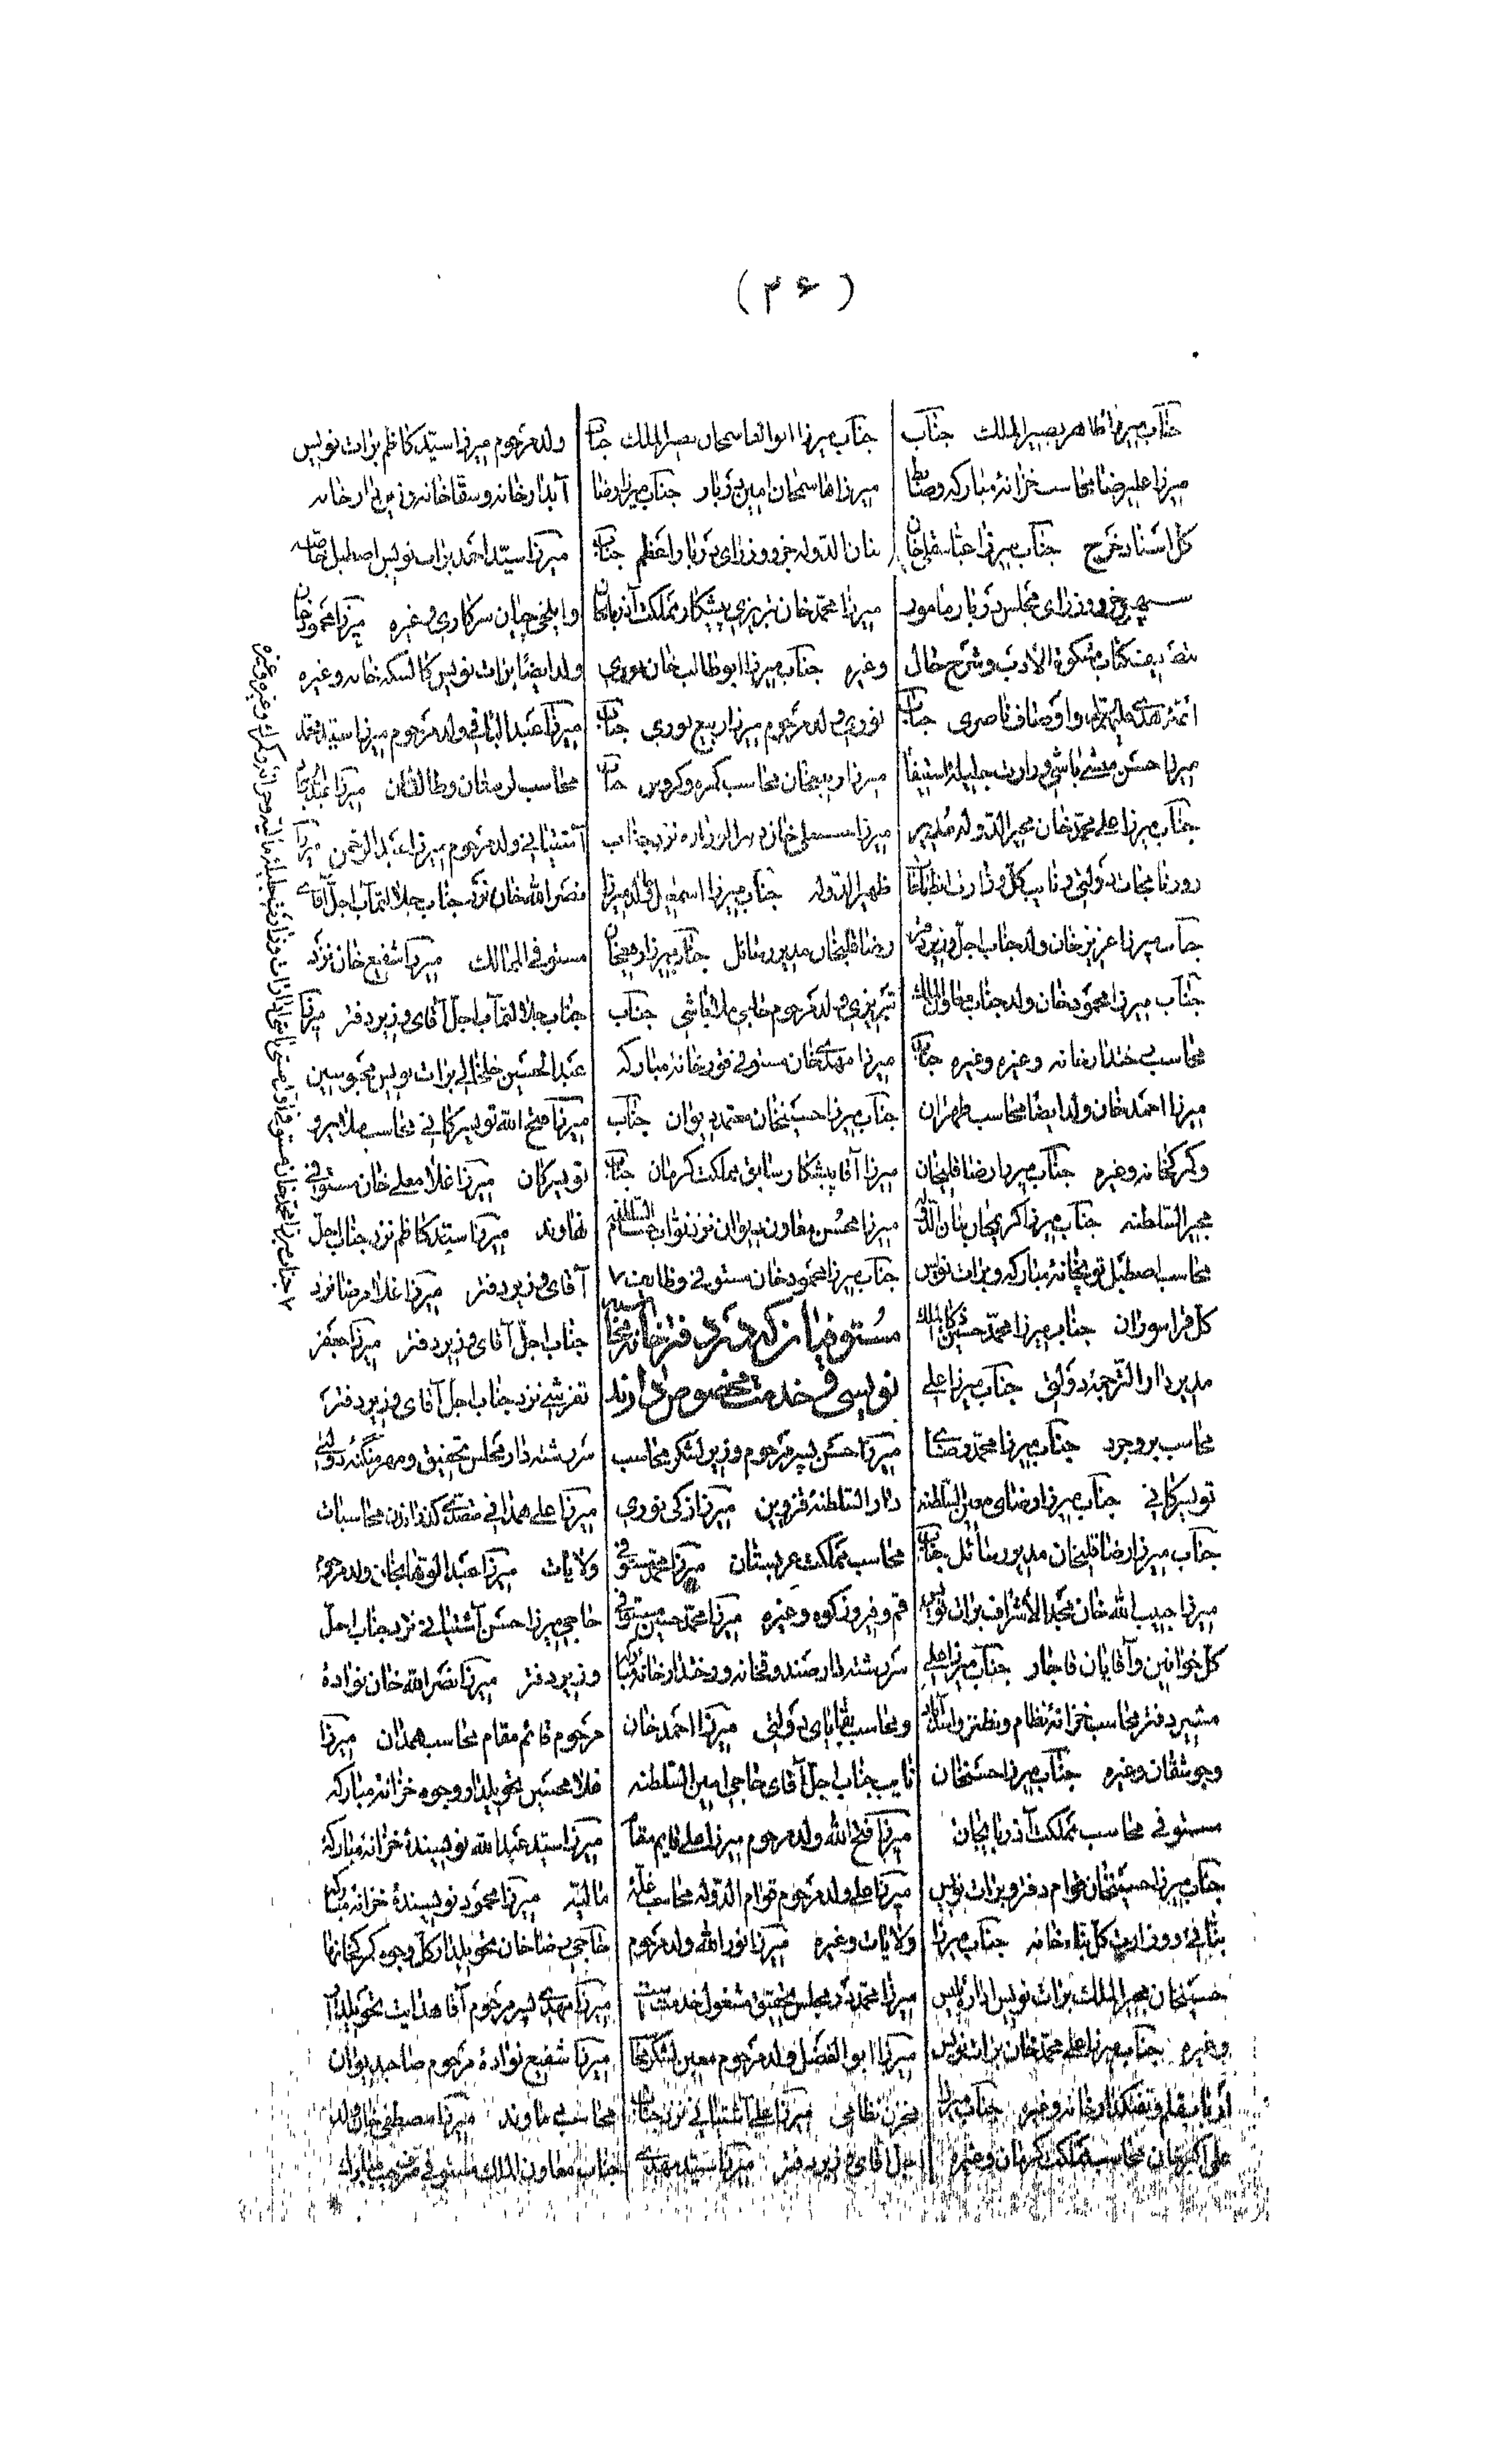 (۳۶)
جناب میرزا طاهر بصیر الملک جناب
میرزا علیرضا محاسب خزانهٔ مبارکه و ضابط
کل اسناد خرج جناب میرزا عباسقلیخان
سپهر جزو وزرای مجلس دربار مامور
تصنیف کتاب مشکوة الادب و شرح حال
ائمهٔ هدی علیهم السلام و اوصاف ناصری جناب
میرزا حسن منشی باشی وزارت جلیلهٔ استیفا
جناب میرزا علی محمد خان مجیر الدوله مدیر
روزنامجات دولتی و نایب کل وزارت انطباعات
جناب میرزا عزیز خان ولد جناب اجل وزیر دفتر
جناب میرزا محمود خان ولد جناب معاون الملک
محاسب خندارخانه وغیره وغیره جناب
میرزا احمد خان ولد ایضا محاسب طهران
و کرکخانه وغیره جناب میرزا رضا قلیخان
مجیر السلطنه جناب میرزا کریمخان بنان الدوله
محاسب اصطبل توپخانهٔ مبارکه و برات نویس
کل قراسوران جناب میرزا محمد حسین ذکاء الملک
مدیر دار الترجمهٔ دولتی جناب میرزا علی
محاسب بروجرد جناب میرزا محمد رضای
تویسرکانی جناب میرزا رضای معین السلطنه
جناب میرزا رضا قلیخان مدیر رسائل جناب
میرزا حبیب الله خان مجد الاشراف برات نویس
کل خوانین و آقایان قاجار جناب میرزا علی
مشیر دفتر محاسب خزانهٔ نظام و نطنز و
و جوشقان وغیره جناب میرزا حسنخان
مستوفی محاسب مملکت آذربایجان
جناب میرزا حسینخان قوام دفتر و برات نویس
بنائی و وزارت کل بناءخانه جناب میرزا
حسینخان مجیر الملک برات نویس ادارهٔ پلیس
وغیره جناب میرزا علی محمد خان برات نویس
ارباب قلم و تفنگدارخانه وغیره جناب میرزا
علی اکبرخان محاسب مملکت کرمان وغیره
جناب میرزا ابوالقاسمخان نصیر الملک جناب
میرزا هاشمخان امین دربار جناب میرزا رضا
بنان الدوله جزو وزرای دربار اعظم جناب
میرزا محمد خان تبریزی پیشکار مملکت آذربایجان
وغیره جناب میرزا ابوطالب خان نوری
نوری ولد مرحوم میرزا ربیع نوری جناب
میرزا ربیعخان محاسب کمره و کزوین جناب
میرزا خان نزد جناب
ظهیر الدوله جناب میرزا اسمعیل ولد میرزا
رضا قلیخان مدیر رسائل جناب میرزا رفیعخان
تبریزی ولد مرحوم حاجی ملا باشی جناب
میرزا مهدی خان مستوفی قورخانهٔ مبارکه
جناب میرزا حسینخان معتمد دیوان جناب
میرزا آقا پیشکار سابق مملکت کرمان جناب
میرزا محسن معاون دیوان نزد نواب حسام السلطنه
جناب میرزا محمود خان مستوفی وظایف ۷
مستوفیانی که در دفترخانه محاسبه
نویسی و خدمت مخصوص دارند
میرزا حسن پسر مرحوم وزیر لشکر محاسب
دار السلطنهٔ قزوین میرزا زکی نوری
محاسب مملکت عربستان میرزا محمد مستوفی
قم و فیروزکوه وغیره میرزا محمد حسین مستوفی
سررشته دار صندوقخانه و رختدارخانهٔ مبارکه
و محاسب بقایای دولتی میرزا احمد خان
نایب جناب اجل آقای حاجی امین السلطنه
میرزا فتح الله ولد مرحوم میرزا علی قایم مقام
میرزا علی ولد مرحوم قوام الدوله محاسب غلهٔ
ولایات وغیره میرزا نور الله ولد مرحوم
میرزا محمد در مجلس تحقیق مشغول خدمت است
میرزا ابوالفضل ولد مرحوم معین لشکر محاسب
مخزن نظامی میرزا علی آشتیانی نزد جناب
اجل آقای وزیر دفتر میرزا سید مهدی
ولد مرحوم میرزا سید کاظم برات نویس
آبدارخانه و سقاخانه و زین دارخانه
میرزا سید احمد برات نویس اصطبل خاصه
و ایلخی چیان سرکاری وغیره میرزا محمود خان
ولد ایضا برات نویس کالسکه خانه وغیره
میرزا عبدالباقی ولد مرحوم میرزا سید محمد
محاسب لرستان و طالقان میرزا
آشتیانی ولد مرحوم میرزا عبدالرحمن میرزا
نصر الله خان نزد جناب جلالتمآب اجل آقای
مستوفی الممالک میرزا شفیع خان نزد
جناب جلالتمآب اجل آقای وزیر دفتر میرزا
عبدالحسین خلخالی برات نویس محبوسین
میرزا فتح الله تویسرکانی محاسب ملایر و
تویسرکان میرزا غلامعلی خان مستوفی
نهاوند میرزا سید کاظم نزد جناب اجل
آقای وزیر دفتر میرزا غلامرضا نزد
جناب اجل آقای وزیر دفتر میرزا جعفر
تفرشی نزد جناب اجل آقای وزیر دفتر
سررشته دار مجلس تحقیق و مهر منگنهٔ دولتی
میرزا علی همدانی متصدی گذراندن محاسبات
ولایات میرزا عبدالوهابخان ولد مرحوم
حاجی میرزا حسن آشتیانی نزد جناب اجل
وزیر دفتر میرزا نصر الله خان نوادهٔ
مرحوم قائم مقام محاسب همدان میرزا
غلامحسین تحویلدار وجوه خزانهٔ مبارکه
میرزا سید عبدالله نویسندهٔ خزانهٔ مبارکهٔ
مالیه میرزا محمود نویسندهٔ خزانهٔ مبارکه
حاجی رضا خان تحویلدار کل وجوه گمرکخانها
میرزا مهدی پسر مرحوم آقا هدایت تحویلدار
میرزا شفیع نوادهٔ مرحوم صاحب دیوان
محاسب دماوند میرزا مصطفی خان ولد
جناب معاون الملک مستوفی
۷ جناب میرزا محمد خان مستوفی اول منشی وزارت جلیلهٔ مالیه وغیره وغیره